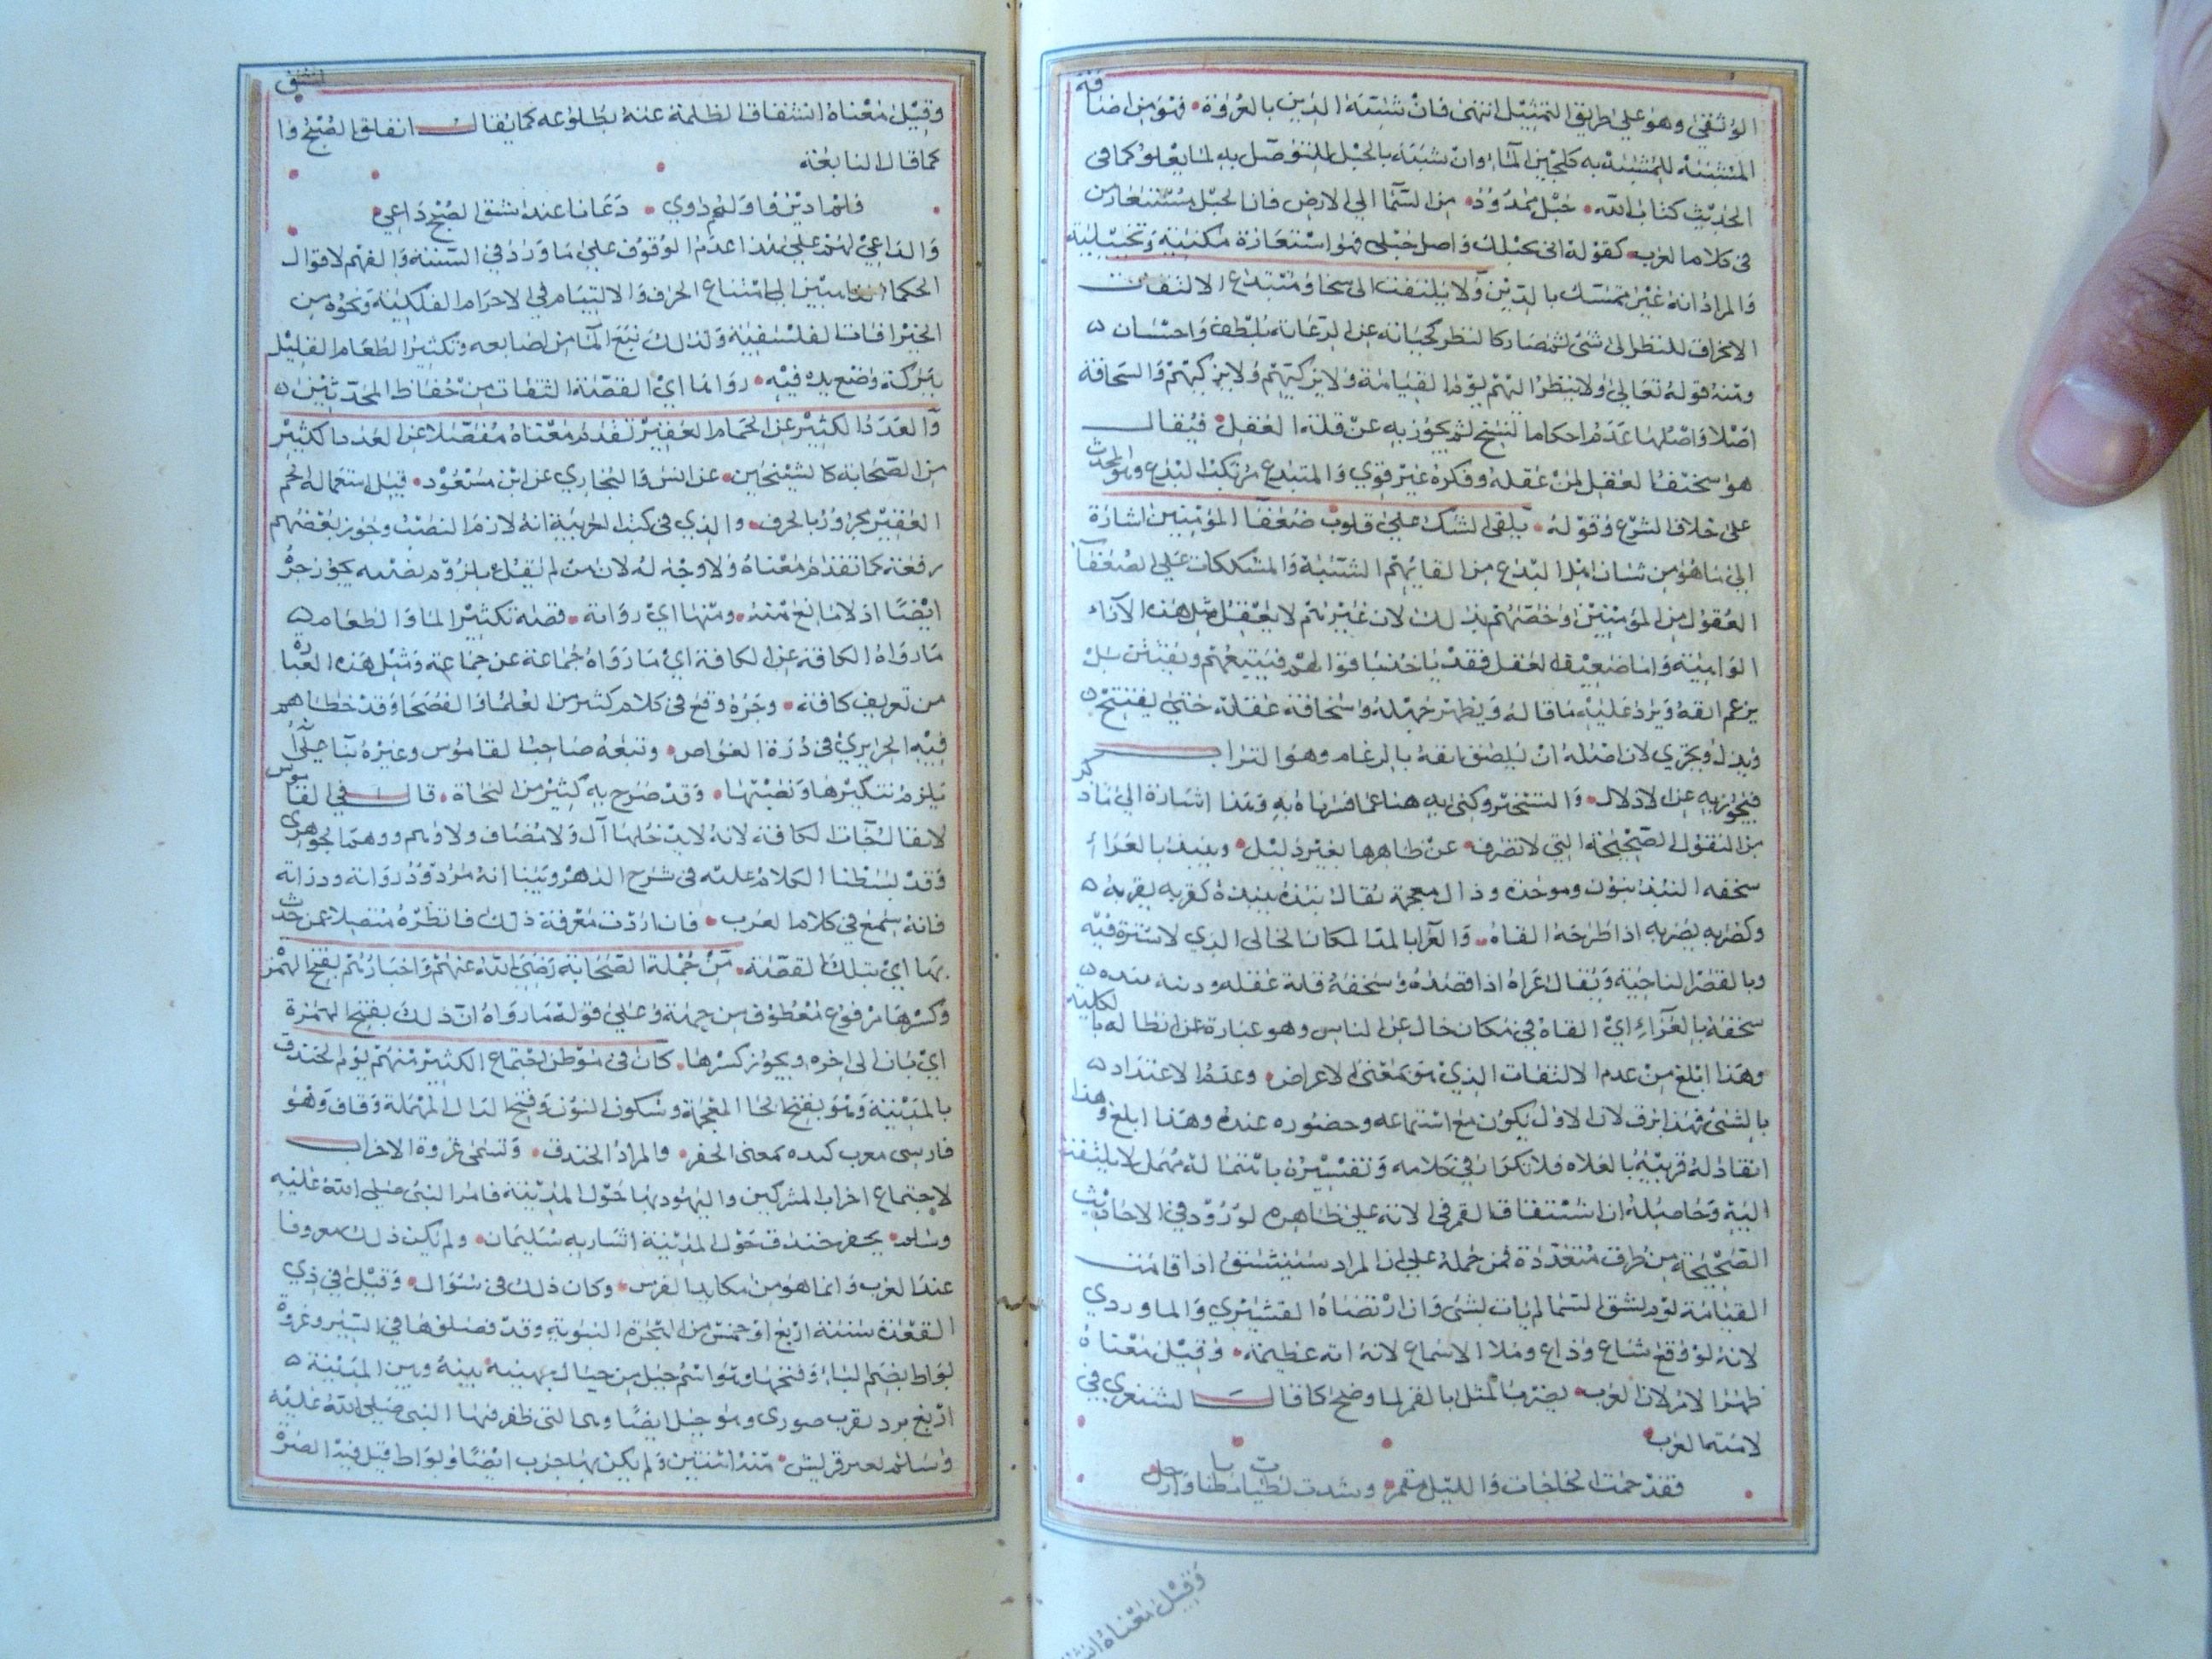 الوثقى وهو على طريق التمثيل انتهى فان شبه الدين بالعروة فهو من اضافة
المشبه للمشبه به كلجين الماء وان شبه بالحبل للتوصل به لما يعلو كما في
الحديث كتاب الله حبل ممدود من السما الى الارض فان الحبل مستعار من
في كلام العرب كقوله انى بحبلك واصل حبلى فهو استعارة مكنية وتخييلية
والمراد انه غير متمسك بالدين ولا يلتفت الى سخافة مبتدع الالتفات
الانحراف للنظر الى شئ ثم صار كالنظر كناية عن الرعاية بلطف واحسان
ومنه قوله تعالى ولا ينظر اليهم يوم القيامة ولا يزكيهم والسخافة
اصلا واصلها عدم احكام النسخ ثم تجوز به عن قلة العقل فيقال
هو سخيف العقل لمن عقله وفكره غير قوي والمتبدع مرتكب البدع وهو المحدث
على خلاف الشرع وقوله يلقى الشك على قلوب ضعفا المؤمنين اشارة
الى ما هو من شان اهل البدع من القايهم الشبه والمشككات على الضعفا
العقول من المؤمنين وخصهم بذلك لان غيرهم لا يعقل مثل هذه الآراء
الواهية واما ضعيف العقل فقد ياخذ باقوالهم فيتبعهم ويفتتن بل
يرغم انفه ويرد عليه ما قاله ويظهر جهله وسخافة عقله حتى يفتضح
ويذل ويخزي لان اصله ان يلصق انفه بالرغام وهو التراب
فتجوز به عن الاذلال وكنى به هنا عما فسرناه به وهذا اشارة الى ما ذكر
من النقول الصحيحة التي لا تصرف عن ظاهرها بغير دليل وينبذ بالعراء
سخفه النبذ بنون وموحدة وذال معجمة يقال نبذه ينبذه كقربه يقربه
وكضربه يضربه اذا طرحه القاه والعرا بالمد المكان الخالى الذي لا سترة فيه
وبالقصر الناحية ويقال عراه اذا قصده وسخفه قلة عقله ودينه نبذه
سخفه بالعراء اي القاه في مكان خال عن الناس وهو عبارة عن ابطاله بالكلية
وهذا ابلغ من عدم الالتفات الذي هو بمعنى الاعراض وعدم الاعتداد
بالشئ فهذا ترق لان الاول يكون مع استماعه وحضوره عنده وهذا ابلغ وهذا
انقاذ له قريبه بالعلاه فلا تكرار في كلامه وتفسيره بانتما له مهمل لا يلتفت
اليه وحاصله ان انشقاق القمر في لانه على ظاهره لوروده في الاحاديث
الصحيحة من طرق متعددة فمن حمله على ان المراد سينشق اذا قامت
القيامة يوم تشق السما لم يات بشئ وان ارتضاه القشيري والماوردي
لانه لو وقع شاع وذاع وملا الاسماع لانه اية عظيمة وقيل معناه
ظهر الامر لان العرب يضرب المثل بالقمر لما وضح كما قال الشنفري في
لامية العرب
فقد حمت الحاجات والليل مقمر وشدت لطيات مطايا وارحل
وقيل معناه انشق
وقيل معناه انشقاق الظلمة عنه بطلوعه كما يقال انفلق الصبح وانشق
كما قال النابغة
فلما ادبروا ولهم دوي دعانا عند شق الصبح داعي
والداعي لهم على هذا عدم الوقوف على ما ورد في السنة والفهم لاقوال
الحكما الذاهبين الى امتناع الخرق والالتيام في الاجرام الفلكية ونحوه من
الخرافات الفلسفية وكذلك نبع الما من اصابعه وتكثير الطعام القليل
ببركة وضع يده فيه رواها اي القصة الثقات من حفاظ المحدثين
والعدد الكثير عن الجمام الغفير تقدم معناه مفصلا عن العدد الكثير
من الصحابة كالشيخين عن انس والبخاري عن ابن مسعود قيل استعماله الجم
الغفير مجرورا بالحرف والذي في كتب العربية انه لازم النصب وجوز بعضهم
رفعه كما تقدم معناه ولا وجه له لان من لم يقل بلزوم نصبه يجوز جره
ايضا اذ لا مانع منه ومنها اي رواته قصة تكثير الما والطعام
ما رواه الكافة عن الكافة اي ما رواه جماعة عن جماعة ومثل هذه العبارة
من تعريف كافة وجره وقع في كلام كثير من العلما والفصحا وقد خطاهم
فيه الحريري في درة الغواص وتبعه صاحب القاموس وغيره بنا على انه
يلزم تنكيرها ونصبها وقد صرح به كثير من النحاة قال في القاموس
لا يقال جات الكافة لانه لا يدخلها ال ولا مضاف ولا وهم ووهم الجوهري
وقد بسطنا الكلام عليه في شرح الدرة وبينا انه مردود رواية ودراية
فانه سمع في كلام العرب فان اردت معرفة ذلك فانظره متصلا عمن حدث
بها اي بتلك القصة من جملة الصحابة رضي الله عنهم واخبارهم بفتح الهمز
وكسرها مرفوع معطوف من جملة وعلى قوله ما رواه ان ذلك بفتح الهمزة
اي بان الى اخره ويجوز كسرها كان في موطن اجتماع الكثير منهم يوم الخندق
بالمدينة وهو بفتح الخا المعجمة وسكون النون وفتح الدال المهملة وقاف وهو
فارسي معرب كنده بمعنى الحفر والمراد الخندق وتسمى غزوة الاحزاب
لاجتماع احزاب المشركين واليهود بها حول المدينة فامر النبى صلى الله عليه
وسلم بحفر خندق حول المدينة اشار به سليمان ولم يكن ذلك معروفا
عند العرب وانما هو من مكايد الفرس وكان ذلك في شوال وقيل في ذي
القعدة سنة اربع او خمس من الهجرة النبوية وقد فصلوها في السير وغزوة
بواط بضم الباء وفتحها وهو اسم جبل من جبال جهينة بينه وبين المدينة
اربع برد بقرب رضوى وهو جبل ايضا وهى التى ظفر فيها النبى صلى الله عليه
وسلم لعير قريش سنة اثنتين ولم يكن بها حرب ايضا وبواط قيل فيه الصرف